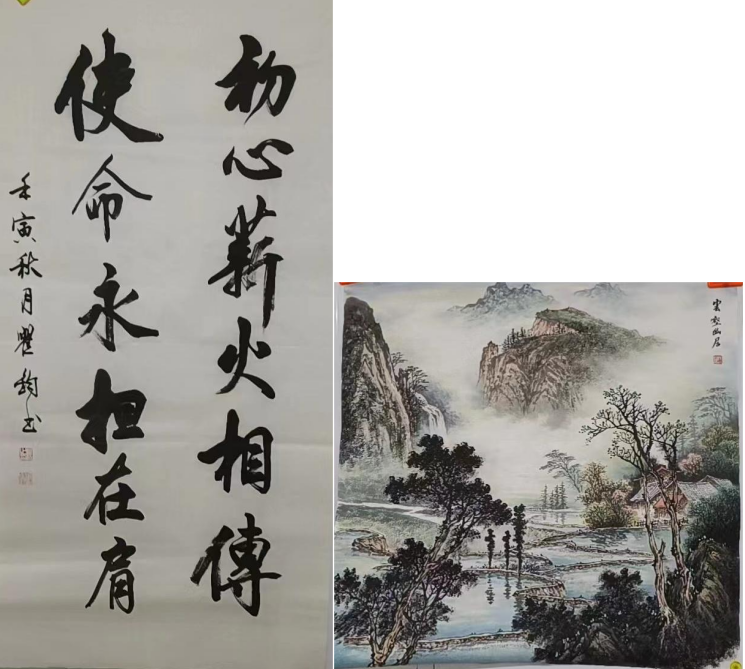 初心薪火相傳
使命永担在肩
壬寅秋月耀鈞书
雲壑幽居